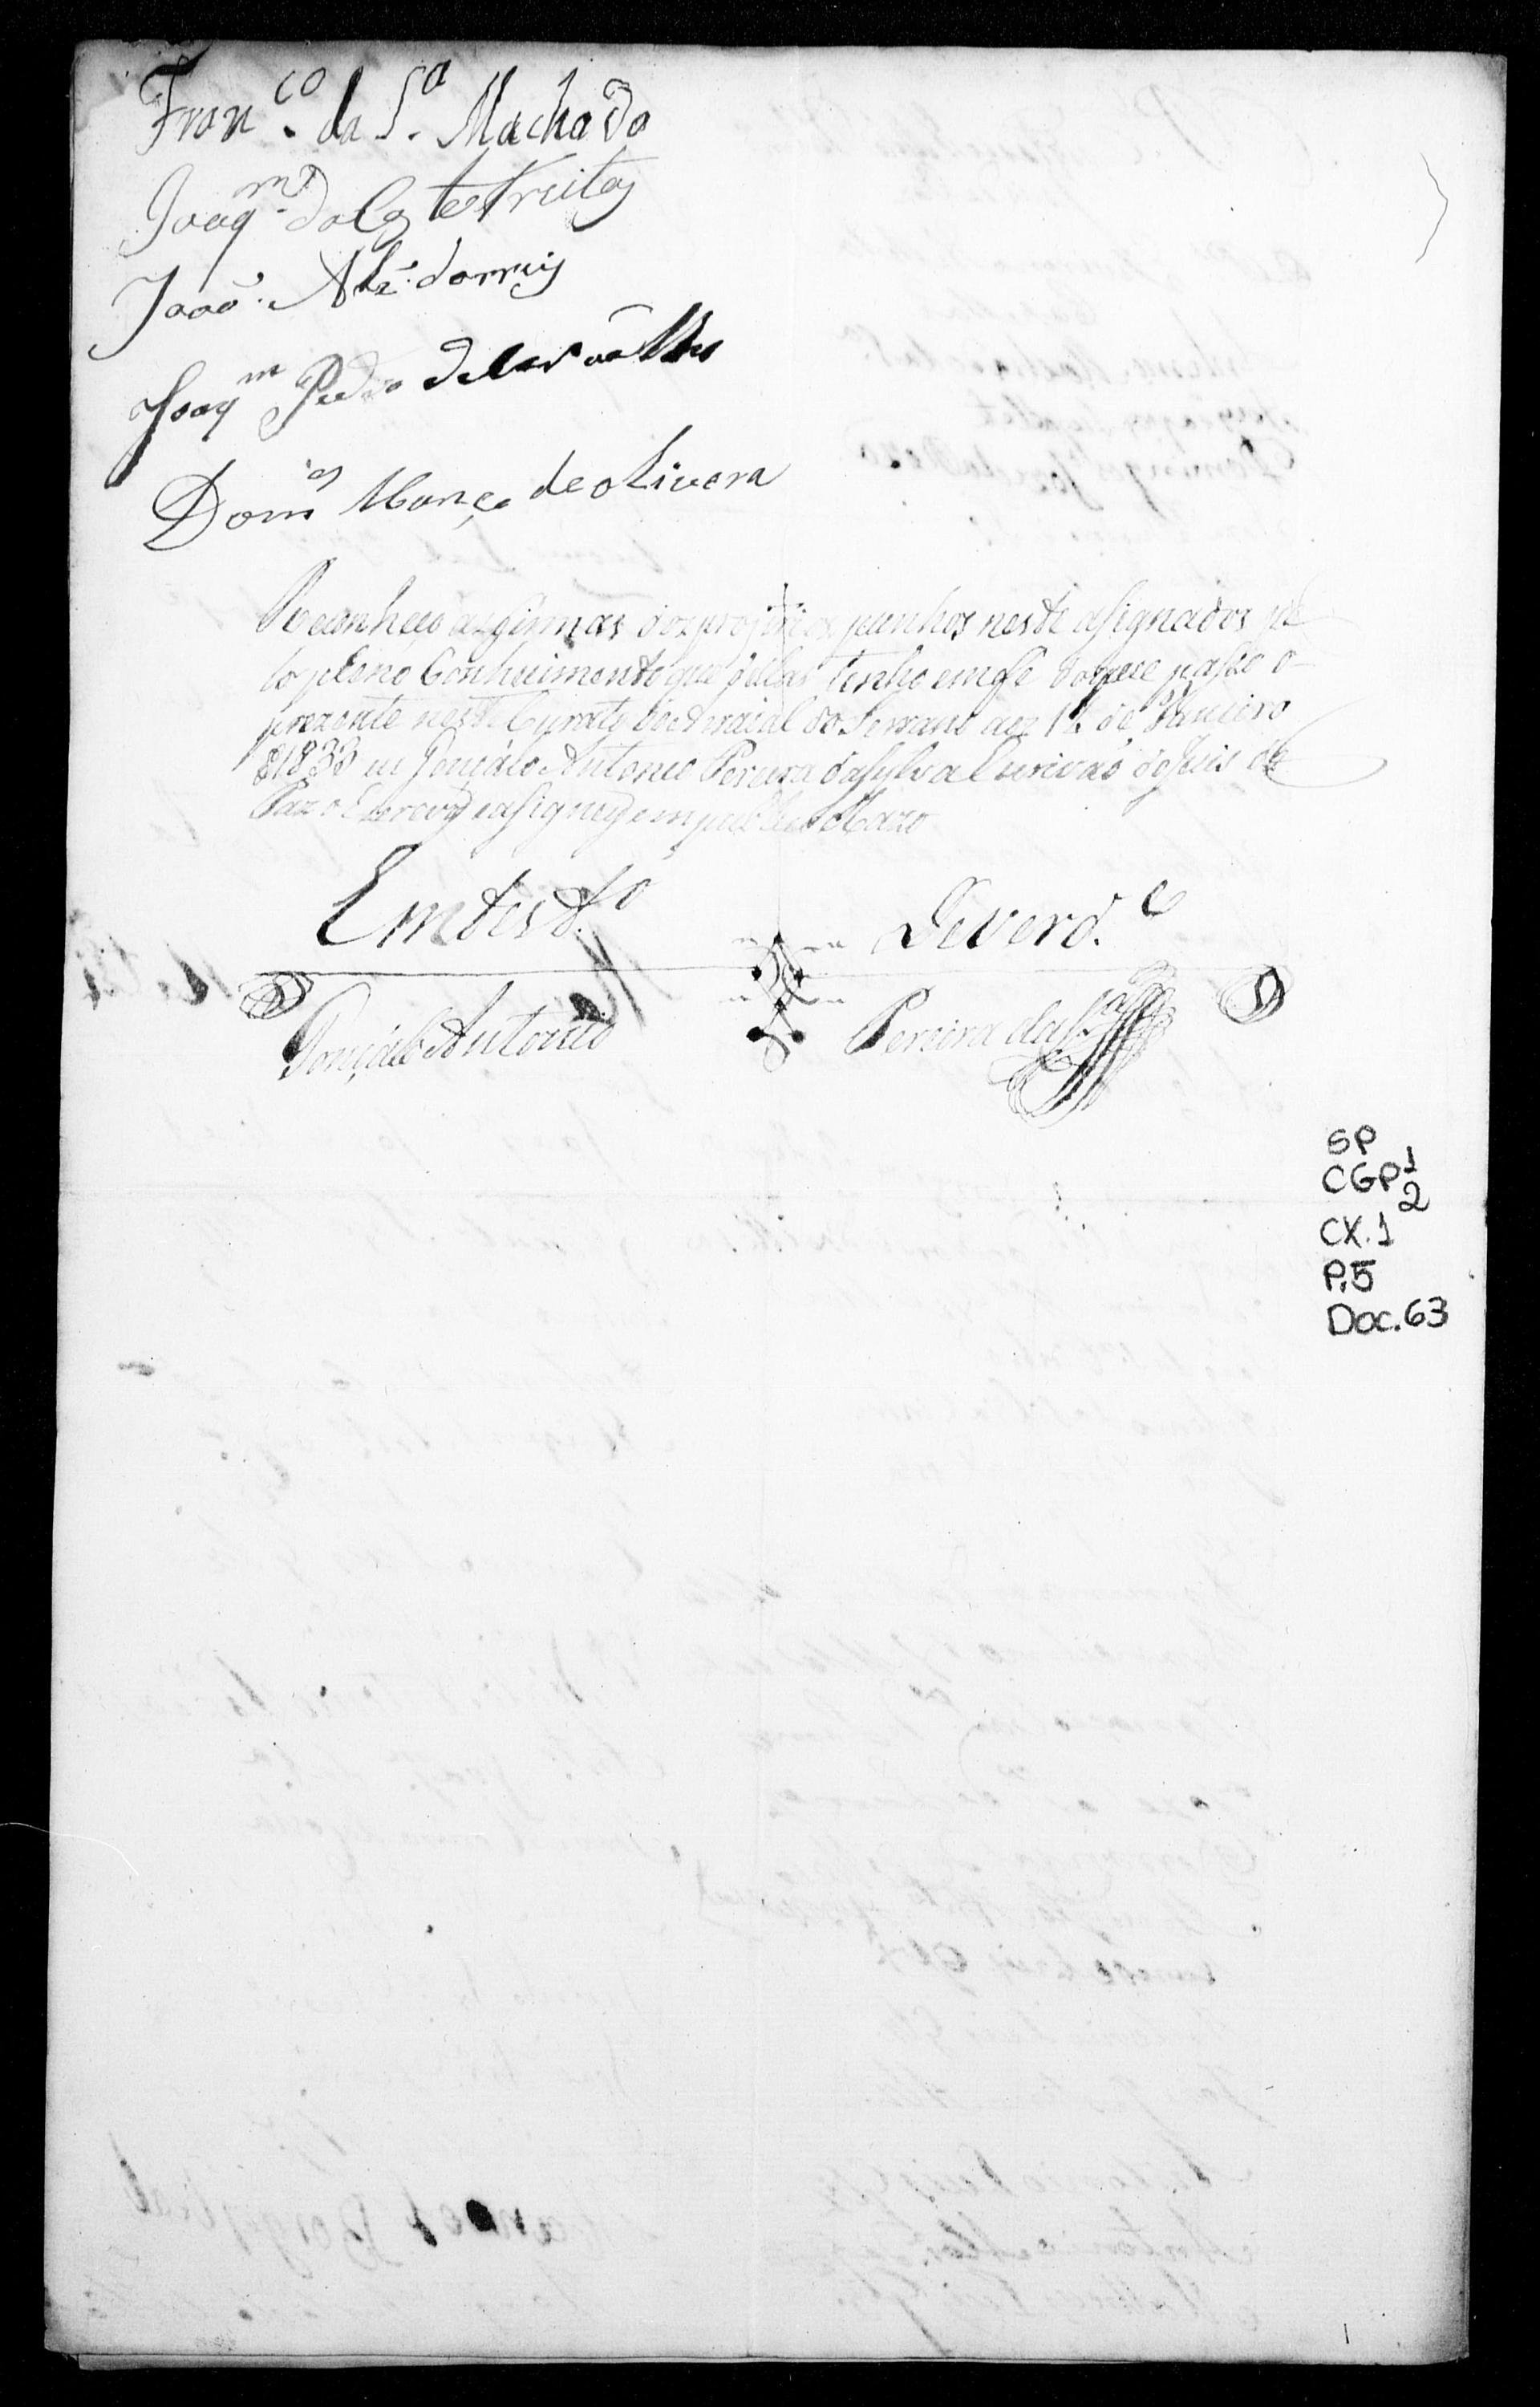 Fran.co da S.a Machado
Joaqm da Cos te Freitas
Joaõ. Alz' dorreis
Joaqm Pedro deCarvalho
Domos deolivera
Reconheço as firmas dos proprios punhos neste asignados pe
lo pleno Conhecimento que dellas tenho emfe doque paseo o
prezente neste Curato do Arraial do Serrano aoz 12 de Janeiro
d1833 eu Gonçalo Antonio Pereira daSylva Escrivaõ doJuis de
Paz o Escrevy easigney empublico Razo
Emtest.o Deverd.e
Gonçalo Antonio Pereira da S.a
SP
CGP 1
2
CX.1
P.5
Doc.63